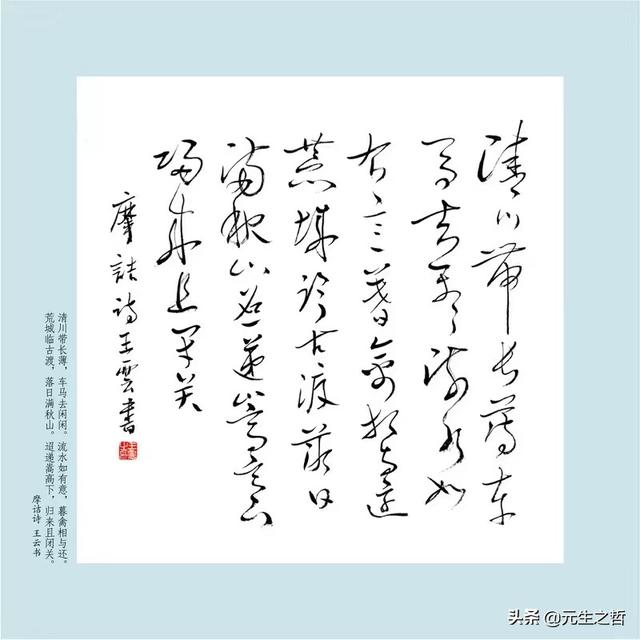 清川帶長薄車
馬去閑閑流水如
有意暮禽相與還
荒城臨古渡落日
滿秋山迢遞嵩高下
歸來且闭关
摩詰诗王雲書
清川带长薄，车马去闲闲。流水如有意，暮禽相与还。
荒城临古渡，落日满秋山。迢递嵩高下，归来且闭关。
摩诘诗 王云书
头条 @元生之哲